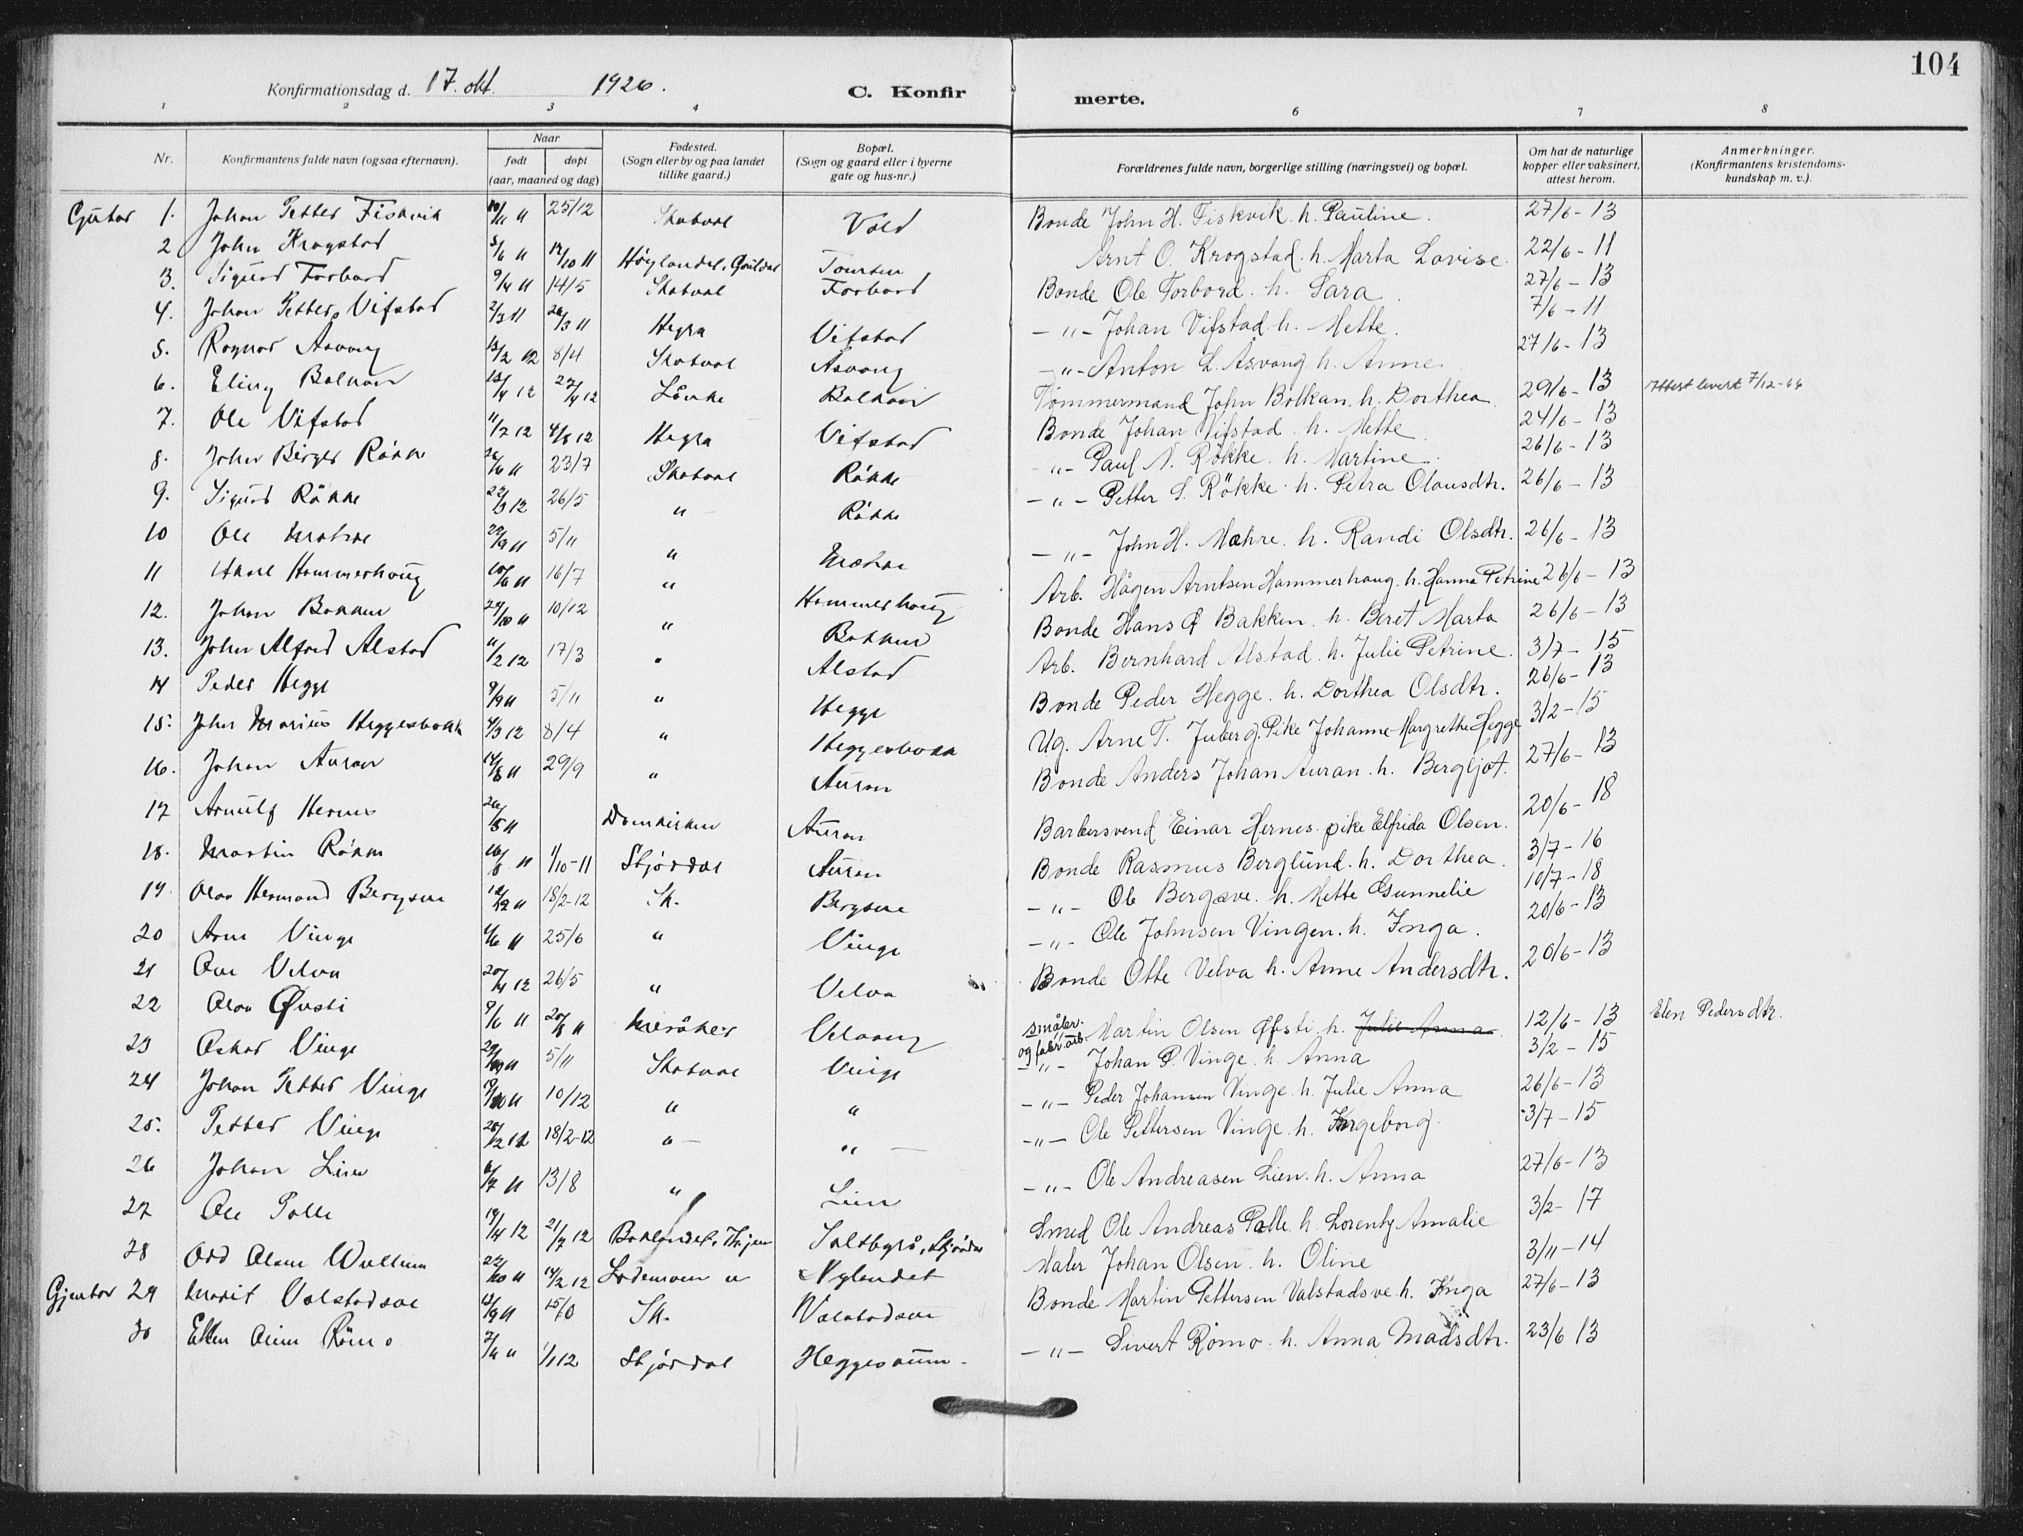 104
Konfirmationsdag d. 17. okt. 1926. C. Konfirmerte.
1 2 3 4 6 7 8
Nr. Konfirmantens fulde navn (ogsaa efternavn). Naar født døpt (aar, maaned og dag) Fødested. (Sogn eller by og paa landet tillike gaard.) Bopæl. (Sogn og gaard eller i byerne gate og hus-nr.) Forældrenes fulde navn, borgerlige stilling (næringsvei) og bopæl. Om hat de naturlige kopper eller vaksinert, attest herom. Anmerkninger. (Konfirmantens kristendomskundskap m. v.).
Gutar 1. Johan Petter Fiskvik 10/11 11 25/12 Skatval Vold Bonde John H. Fiskvik. h. Pauline. 27/6-13
2 John Krogstad 5/6 11 12/10 11 Høylandet, Arnt O. Krogstad. h. Marta Lovise. 22/6-11
3. Sigurd Forbord 9/4 11 14/5 Skatval Forbord Bonde Ole Forbord. h. Sara. 27/6-13
4. Johan Petter Vifstad 2/3 11 26/3 11 Hegra Vifstad -"- Johan Vifstad h. Mette. 7/6-11
5. Ragnar Åsvang 13/2 12 8/4 Skatval Åsvang -"- Anton L. Åsvang h. Anne. 27/6-13
6. Eling Balkan 4 12 27/4 12 Lånke Balkan Tømmermand John Bolkan. h. Dorthea. 29/6-13 Attest levert 7/12-66
7. Ole Vifstad 11/7 12 4/8 12 Hegra Vifstad Bonde Johan Vifstad. h. Mette. 24/6-13
8. John Birger Røkke 26/6 11 23/7 Skatval Røkke -"- Paul N. Røkke. h. Martine. 26/6-13
9. Sigurd Røkke 22/3 12 26/5 " Røkke -"- Petter S. Røkke. h. Petra Olausdtr. 26/6-13
10 Ole Mæhre 29/9 11 5/11 " Mæhre -"- John H. Mæhre. h. Randi Olsdtr. 26/6-13
11 Hammerhaug 10/6 11 16/7 " Hammerhaug Arb. Hågen Arntsen Hammerhaug. h. Hanna Petrine 26/6-13
12. Johan Bakken 24/10 11 10/12 " Bakken Bonde Hans Bakken. h. Beret Marta 26/6-13
13. John Alfred Alstad 11/2 12 17/3 " Alstad Arb. Bernhard Alstad. h. Julie Petrine. 3/7-15
14 Peder Hegge 9/9 11 5/11 " Hegge Bonde Peder Hegge. h. Dorthea Olsdtr. 26/6-13
15. John Marius Heggesbakk 4/3 12 8/4 " Heggesbakk Ug. Arne T. Juberg. Pike Johanne Margrethe Hegge 3/2-15
16. Johan Auran 14/8 11 29/9 " Auran Bonde Anders Johan Auran. h. Bergljot. 27/6-13
17 Arnulf Hernes 26/5 11 Domkirken Auran Barbersvend Einar Hernes. pike Elfrida Olsen. 20/6-18
18. Martin Røkke 16/8 11 1/10-11 Stjørdal Auran Bonde Rasmus Berglund. h. Dorthea. 3/7-16
19. Olav Hermand Bergsve 12 11 18/2-12 Sk. Bergsve -"- Ole Bergsve. h. Mette Gunnelie 10/7-18
20 Arne Vinge 4/6 11 25/6 " Vinge -"- Ole Johnsen Vingen. h. Inga. 20/6-13
21 Ove Velva 20/4 12 26/5 " Velva Bonde Otte Velva h. Anne Andersdtr. 20/6-13
22 Olav Øvsti 9/6 11 20/8 11 Meråker småbr. og fabr. arb. Martin Olsen Øfsti. h. Julie Anna 12/6-13 Elen Pedersdtr.
23 Oskar Vinge 11 5/11 Skatval Vinge -"- Johan P. Vinge. h. Anna 3/2-15
24 Johan Petter Vinge 19/10 11 10/12 " " -"- Peder Johansen Vinge. h. Julie Anna 26/6-13
25. Petter Vinge 12 11 18/2-12 "- "- -"- Ole Pettersen Vinge. h. Ingeborg 3/7-15
26 Johan Lien 6/7 11 13/8 " Lien -"- Ole Andreasen Lien. h. Anna 27/6-13
27 Ole Palle 19/4 12 21/7 12 Smed Ole Andreas Palle. h. Lorenty Amalie 3/2-17
28 Odd Olsen Wullum 22/10 11 14/2 12 Lademoen Nylandet Maler Johan Olsen. h. Oline 3/11-14
Gjentor 29 Marit Valstadsve 13/9 11 Sk. Valstadsve Bonde Martin Pettersen Valstadsve h. Inga 27/6-13
30 Ellen Anne Rømo 7 11 1/1 12 Stjørdal -"- Sivert Rømo. h. Anna Madsdtr. 23/6 13